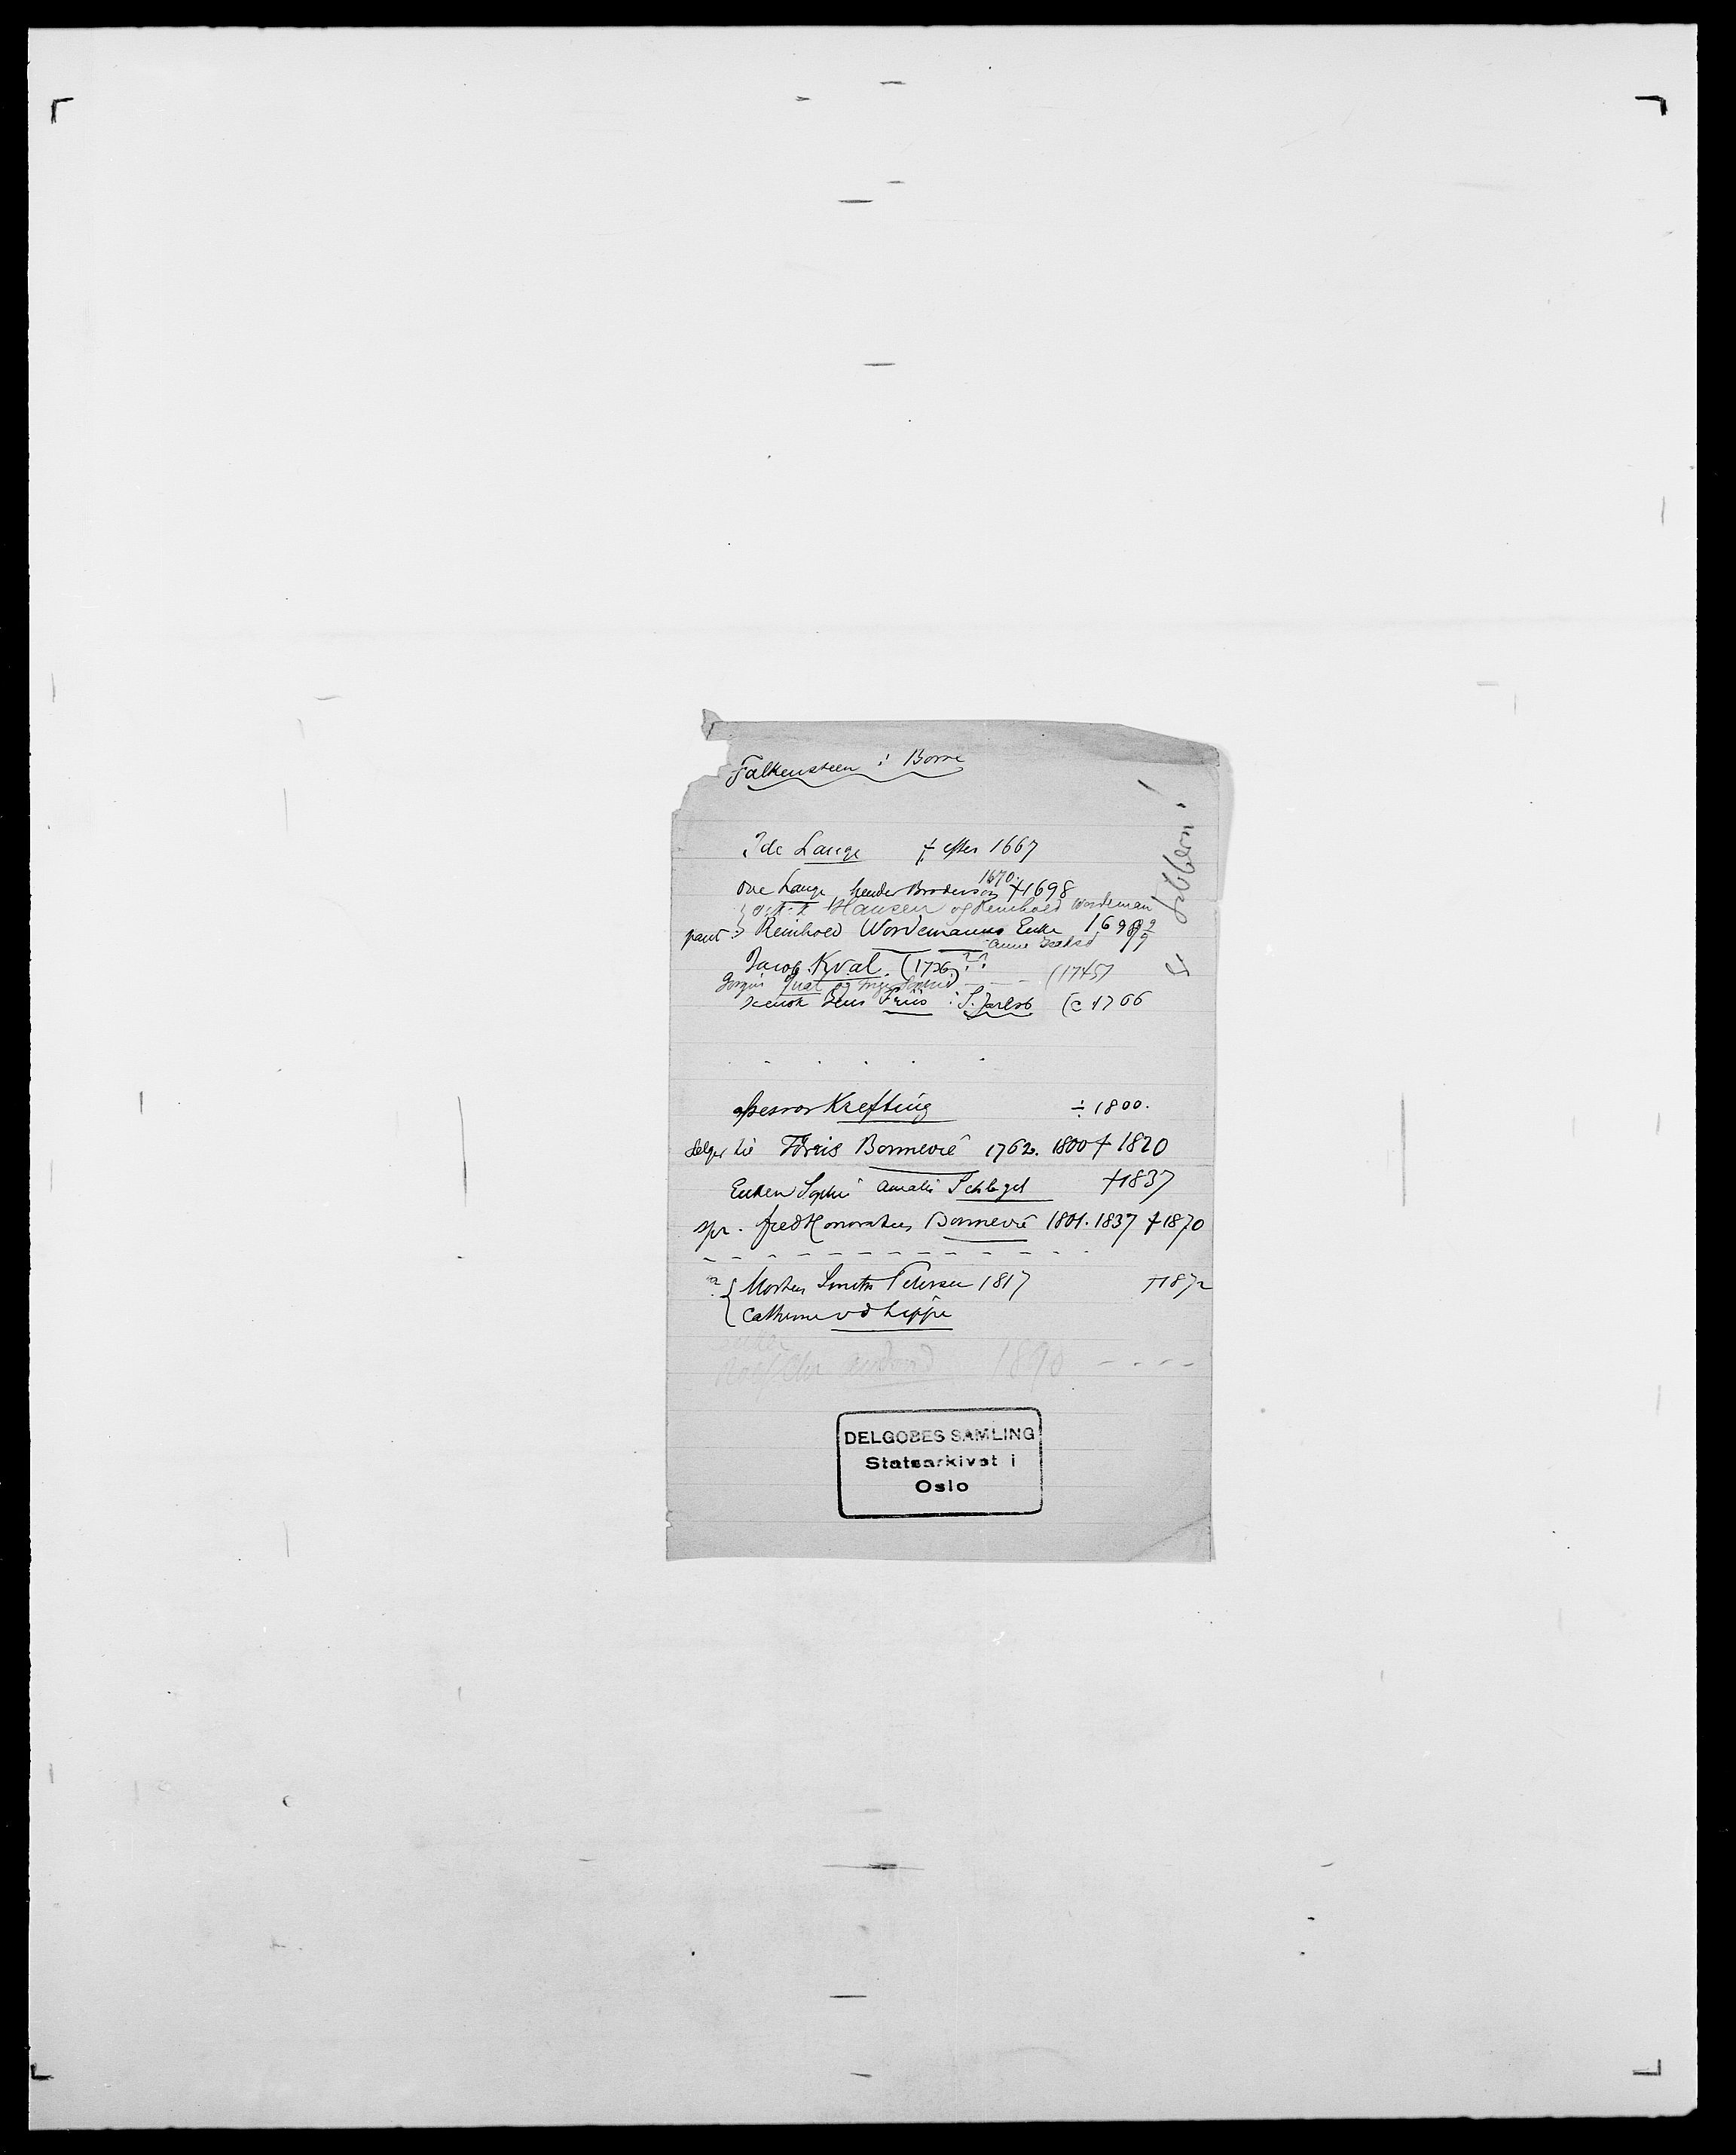 Falkensteen i Borre
Ide Lange † efter 1667
1670.
Ove Lange, hendes Brodersøn †1698
Hansen og Reinhold Wordeman
pant. Reinhold Wordemanns Enke 1698 9/9
Anne
Jacob Kval (1726) ??
Jørgen Qual og (1745)
Jens Friis i S. Jarlsb (c 1766
assessor Krefting ÷ 1800.
selger til Fdrik Bonnevie 1762. 1800 † 1820
Enken Sophie Amalie Schlegel †1837
Fred Honoratus Bonnevie 1801. 1837 † 1870
{ Morten Smith Petersen 1817 †1872
Cathrine v d Lippe
1890 - - - -
DELGOBES SAMLING
Statsarkivet i
Oslo